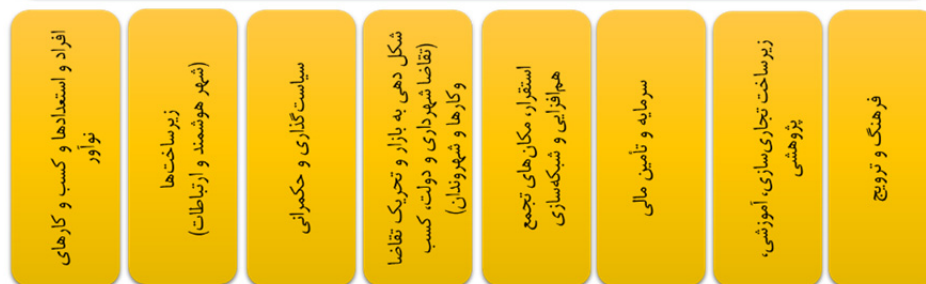 فرهنگ و ترویج
زیرساخت تجاری‌سازی، آموزشی،
پژوهشی
سرمایه و تأمین مالی
استقرار، مکان‌های تجمع
هم‌افزایی و شبکه‌سازی
شکل دهی به بازار و تحریک تقاضا
(تقاضا شهرداری و دولت، کسب
وکارها و شهروندان)
سیاست‌گذاری و حکمرانی
زیرساخت‌ها
(شهر هوشمند و ارتباطات)
افراد و استعدادها و کسب و کارهای
نوآور